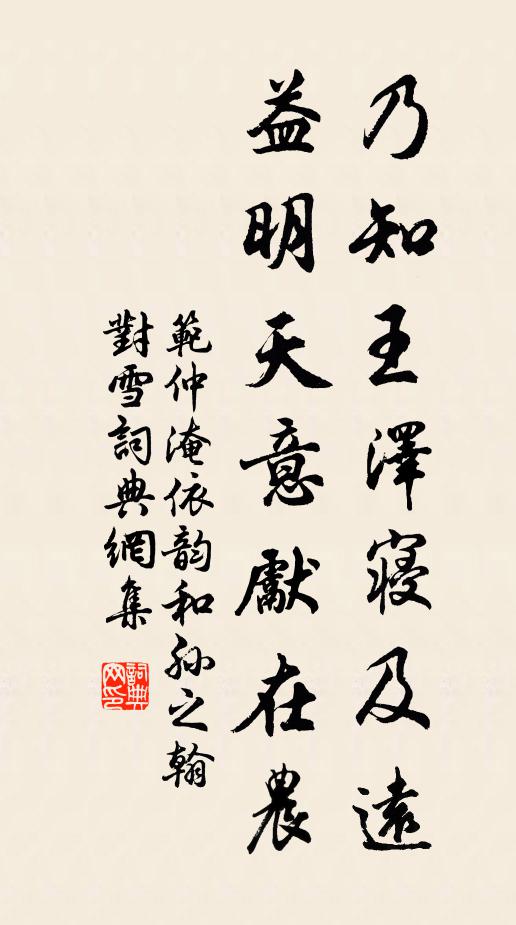 乃知王澤寢及遠
益明天意獻在農
範仲淹依韵和孫之翰
對雪詞典網集
詞典
网印